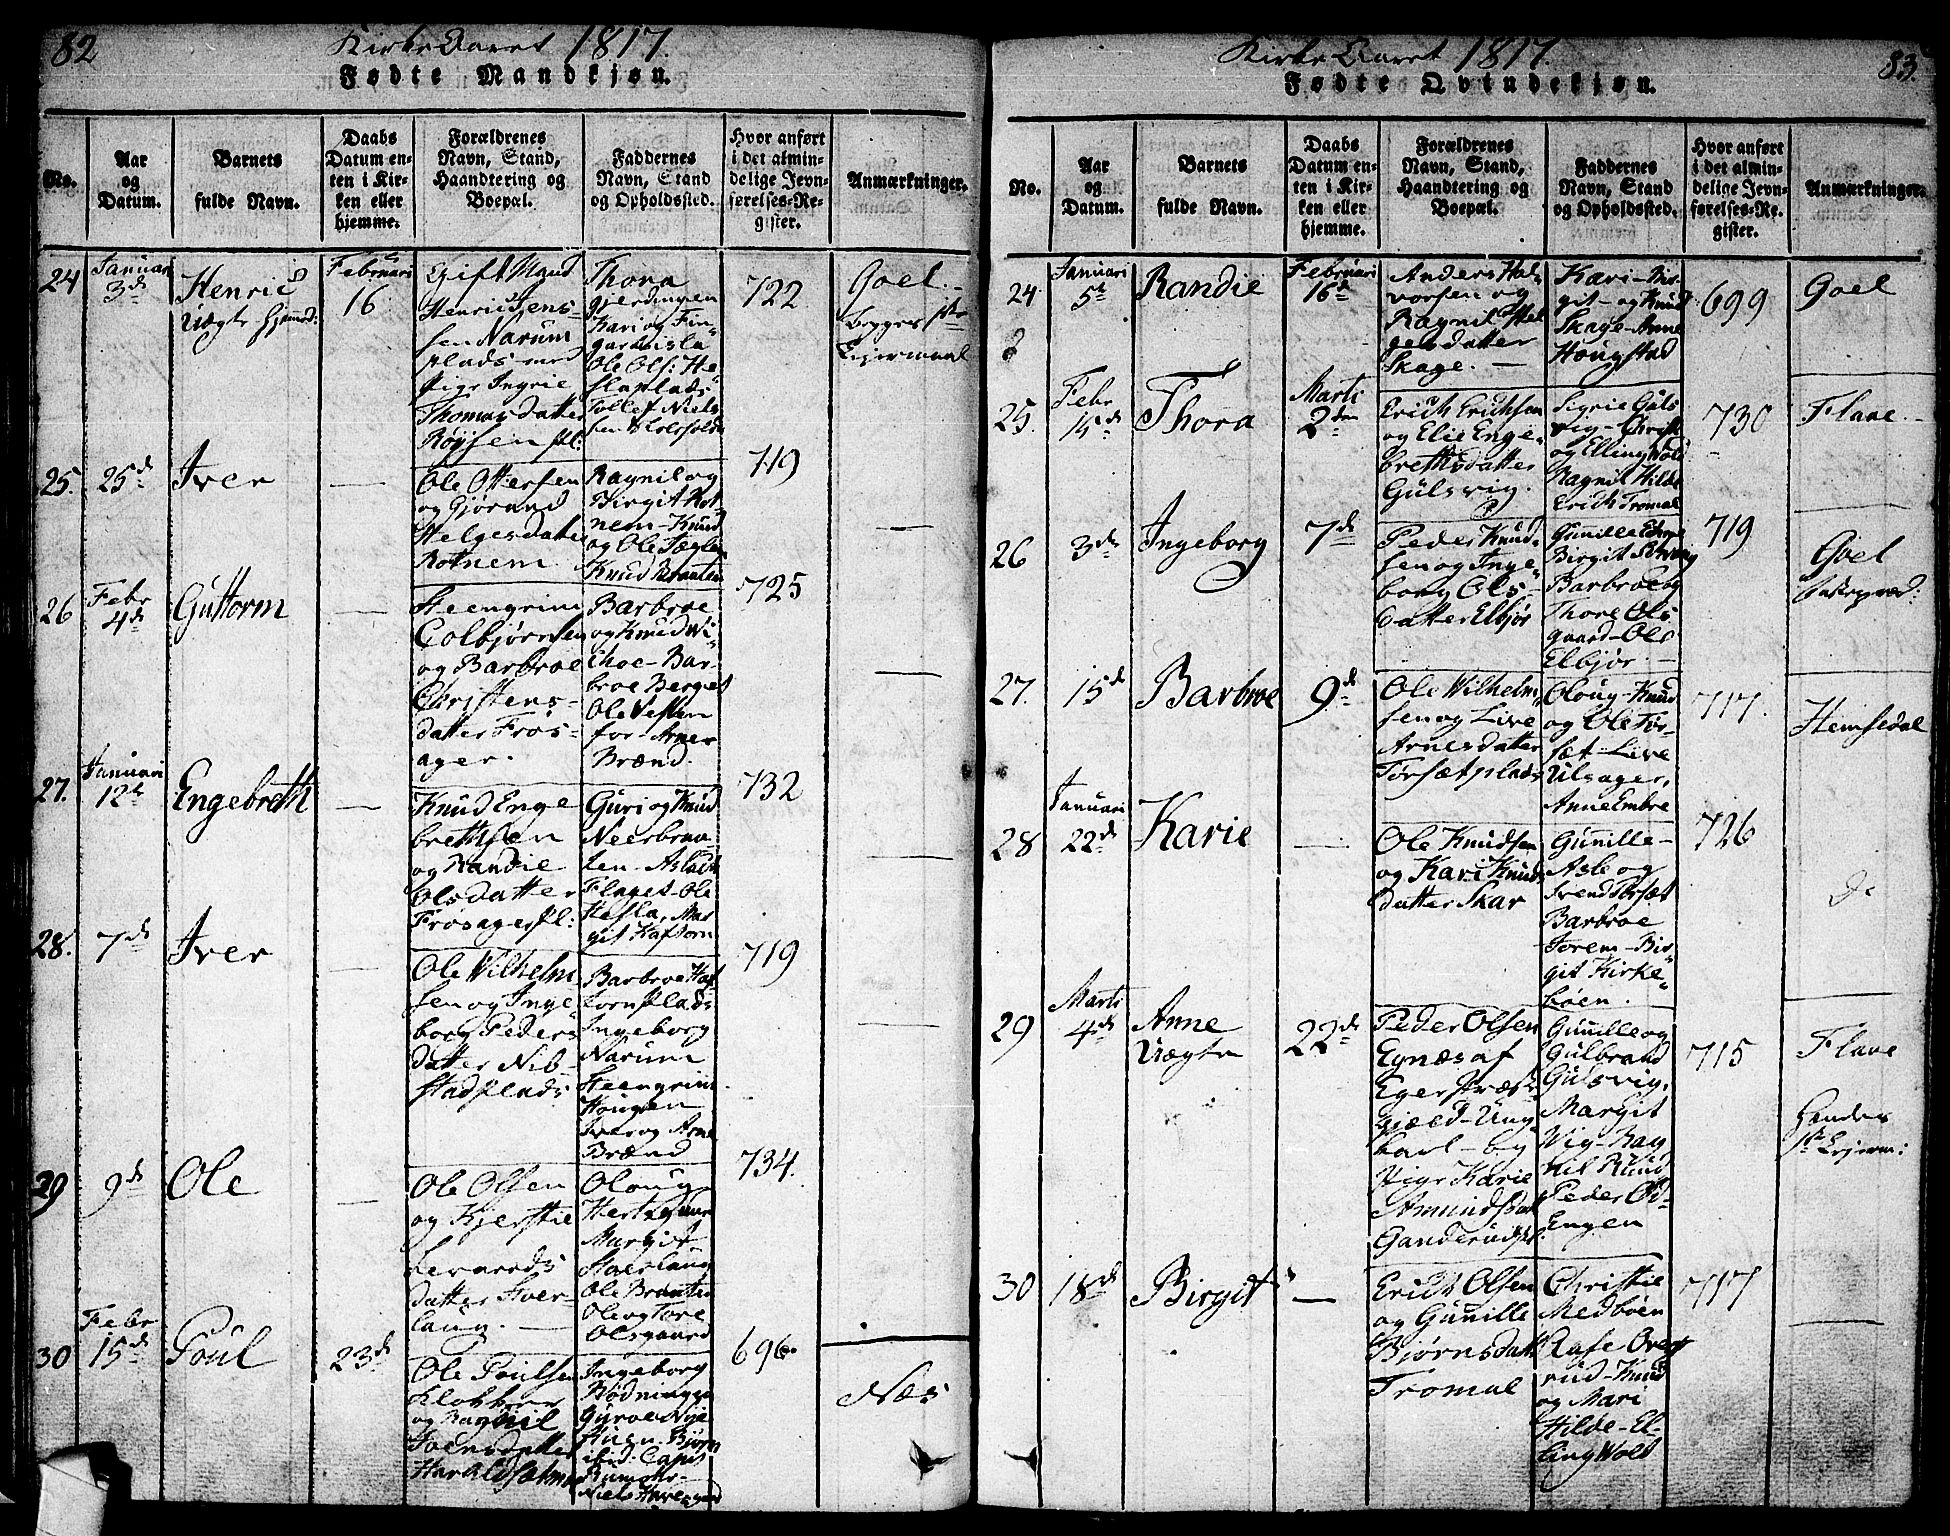 82
Kirke Aaret 1817.
Fødte Mandkjøn.
No.
Aar
og
Datum.
Barnets
fulde Navn.
Daabs
Datum en-
ten i Kir-
ken eller
hjemme.
Forældrenes
Navn, Stand,
Haandtering og
Boepæl.
Faddernes
Navn, Stand
og Opholdssted.
Hvor anført
i det almin-
delige Jevn-
førelses-Re-
gister.
Anmærkninger.
24
Januari
3de
Henric
Uægte
Februari
16
Gift Mand
Henric Jens-
sen Narum
plads med
Pige Ingrie
Thomasdatter
Røysen pl:
Thora
Gjerdingen
Kari og Fin-
gardeisla
Ole Ols: He-
slaplads:
Tollef Niels
722
Goel.
Begges 1ste
Lejermaal
25.
25de
Iver
—
Ole Ottersen
og Gjørand
Helgesdatter
Rotnem.
Ragnil og
Birgit Rot-
nem - Knud
og Ole
Knud Branten
719
—
26
Febr
4de
Guttorm
—
Steengrim
Colbjørnsen
og Barbroe
Christens-
datter Frøs-
ager.
Barbroe
og Knud Wi-
choe - Bar-
broe Berget
Ole Vesten
for - Arner
Brænd.
725
—
27.
Januari
12te
Engebreth
—
Knud Enge
brethsen
og Randie
Olsdatter
Frøsager pl:
Guri og Knud
Neerbraa-
ten - Aslach
Flaget - Ole
Hesla, Mar
git Kaftorn
732
—
28.
7de
Iver
—
Ole Wilhelm-
sen og Inge
borg Peders
datter Nib-
stadplads
Barbroe Kaf
tornplads
Ingeborg
Narum
Steengrim
Hougen
Iver og Arne
Brænd
719
—
29
9de
Ole
—
Ole Olsen
og Kjerstie
Levardsdatter
Sver-
laug. —
Oloug
Margit
Ole Branten
Ole og Tore
Olsgaard
734.
30
Febr
15de
Poul
23de
Ole Poulsen
Klokker
og Ragnil
Svensdatter
Ingeborg
Rødningge
Guroe Nye
Huen. Bjørn
ibid. Capt
Rumohr-
696.
Næs
83.
Kirke Aaret 1817.
Fødte Qvindekjøn.
No.
Aar
og
Datum.
Barnets
fulde Navn.
Daabs
Datum en-
ten i Kir-
ken eller
hjemme.
Forældrenes
Navn, Stand,
Haandtering og
Boepæl.
Faddernes
Navn, Stand
og Opholdssted.
Hvor anført
i det almin-
delige Jevn-
førelses-Re-
gister.
Anmærkninger.
24.
Januari
5te
Randie
Februari
16de
Anders Hal-
vorsen og
Ragnil Hel
gesdatter
Skage. —
Kari - Bir-
git - og Knud
Skage - Anne
Hougstad
699
Goel
25.
Febr
14de
Thora
Marti
2den
Erich Erichsen
og Elie Enge-
brethsdatter
Gulsvig.
Sigrie Guls
vig - Christi
og Elling Wold
Ragnil Hilde
Erich Tromal
730
Flaae.
26
3de
Ingeborg
7de
Peder Knud-
sen og Inge-
borg Ols-
datter Elbjør
Gunille
Birgit
Barbroe og
Thore Ols
gaard - Ole
Elbjør. —
719
Goel
27.
15de
Barbroe
9de
Ole Wilhelm-
sen og Live
Arnesdatter
Torsætplads
Oloug - Knud
og Ole Tor-
sæt - Live
Ulsager,
Anne Embre
717.
Hemsedal
28
Januari
22de
Karie
—
Ole Knudsen
og Kari Knuds
datter Skar
Gunille-
Asle og
Svend Torsæt
Barbroe
Torem - Bir-
git Kirke-
bøen.
726
29
Marti
4de
Anne
Uægte
22de
Peder Olsen
Egnæs af
Eger Præste-
gjæld - Ung-
karl - og
Pige Karie
Amundsdat
Ganderud pl:
Gunille og
Gulbrand
Gulsvig,
Margit
Wig - Rag
nil Rund
Peder
Engen
715
Flaae
Hendes
1ste Lejerm:
30
18de
Birgit
—
Erich Olsen
og Gunille
Bjørnsdatt
Tromal
Christie
Medbøen
Rafe Over
rud - Knud
og Mari
Hilde - El-
ling Wolt
717
—